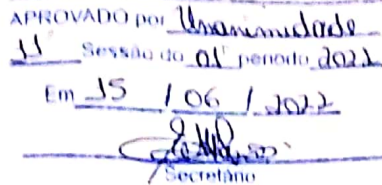 APROVADO por Unanimidade
11ª Sessão do 01º período 2022
Em 15 / 06 / 2022
Secretário